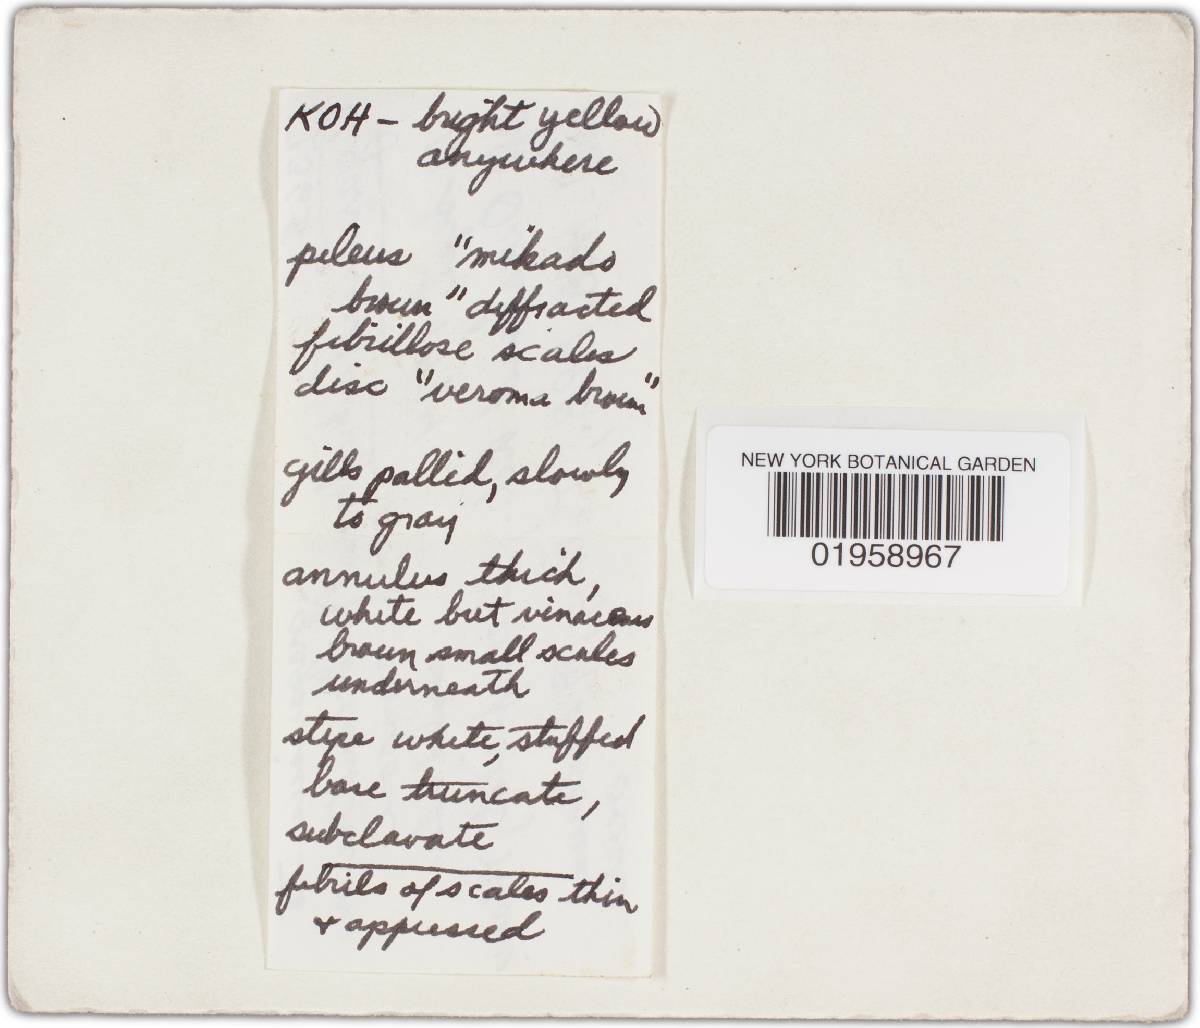 KOH – bright yellow
anywhere
pileus "mikado
brown" diffracted
fibrillose scales
disc "verona brown"
gills pallid, slowly
to gray
annulus thick,
white but vinaceous
brown small scales
underneath
stipe white, stuffed
base truncate,
subclavate
fibrils of scales thin
+ appressed
NEW YORK BOTANICAL GARDEN
01958967